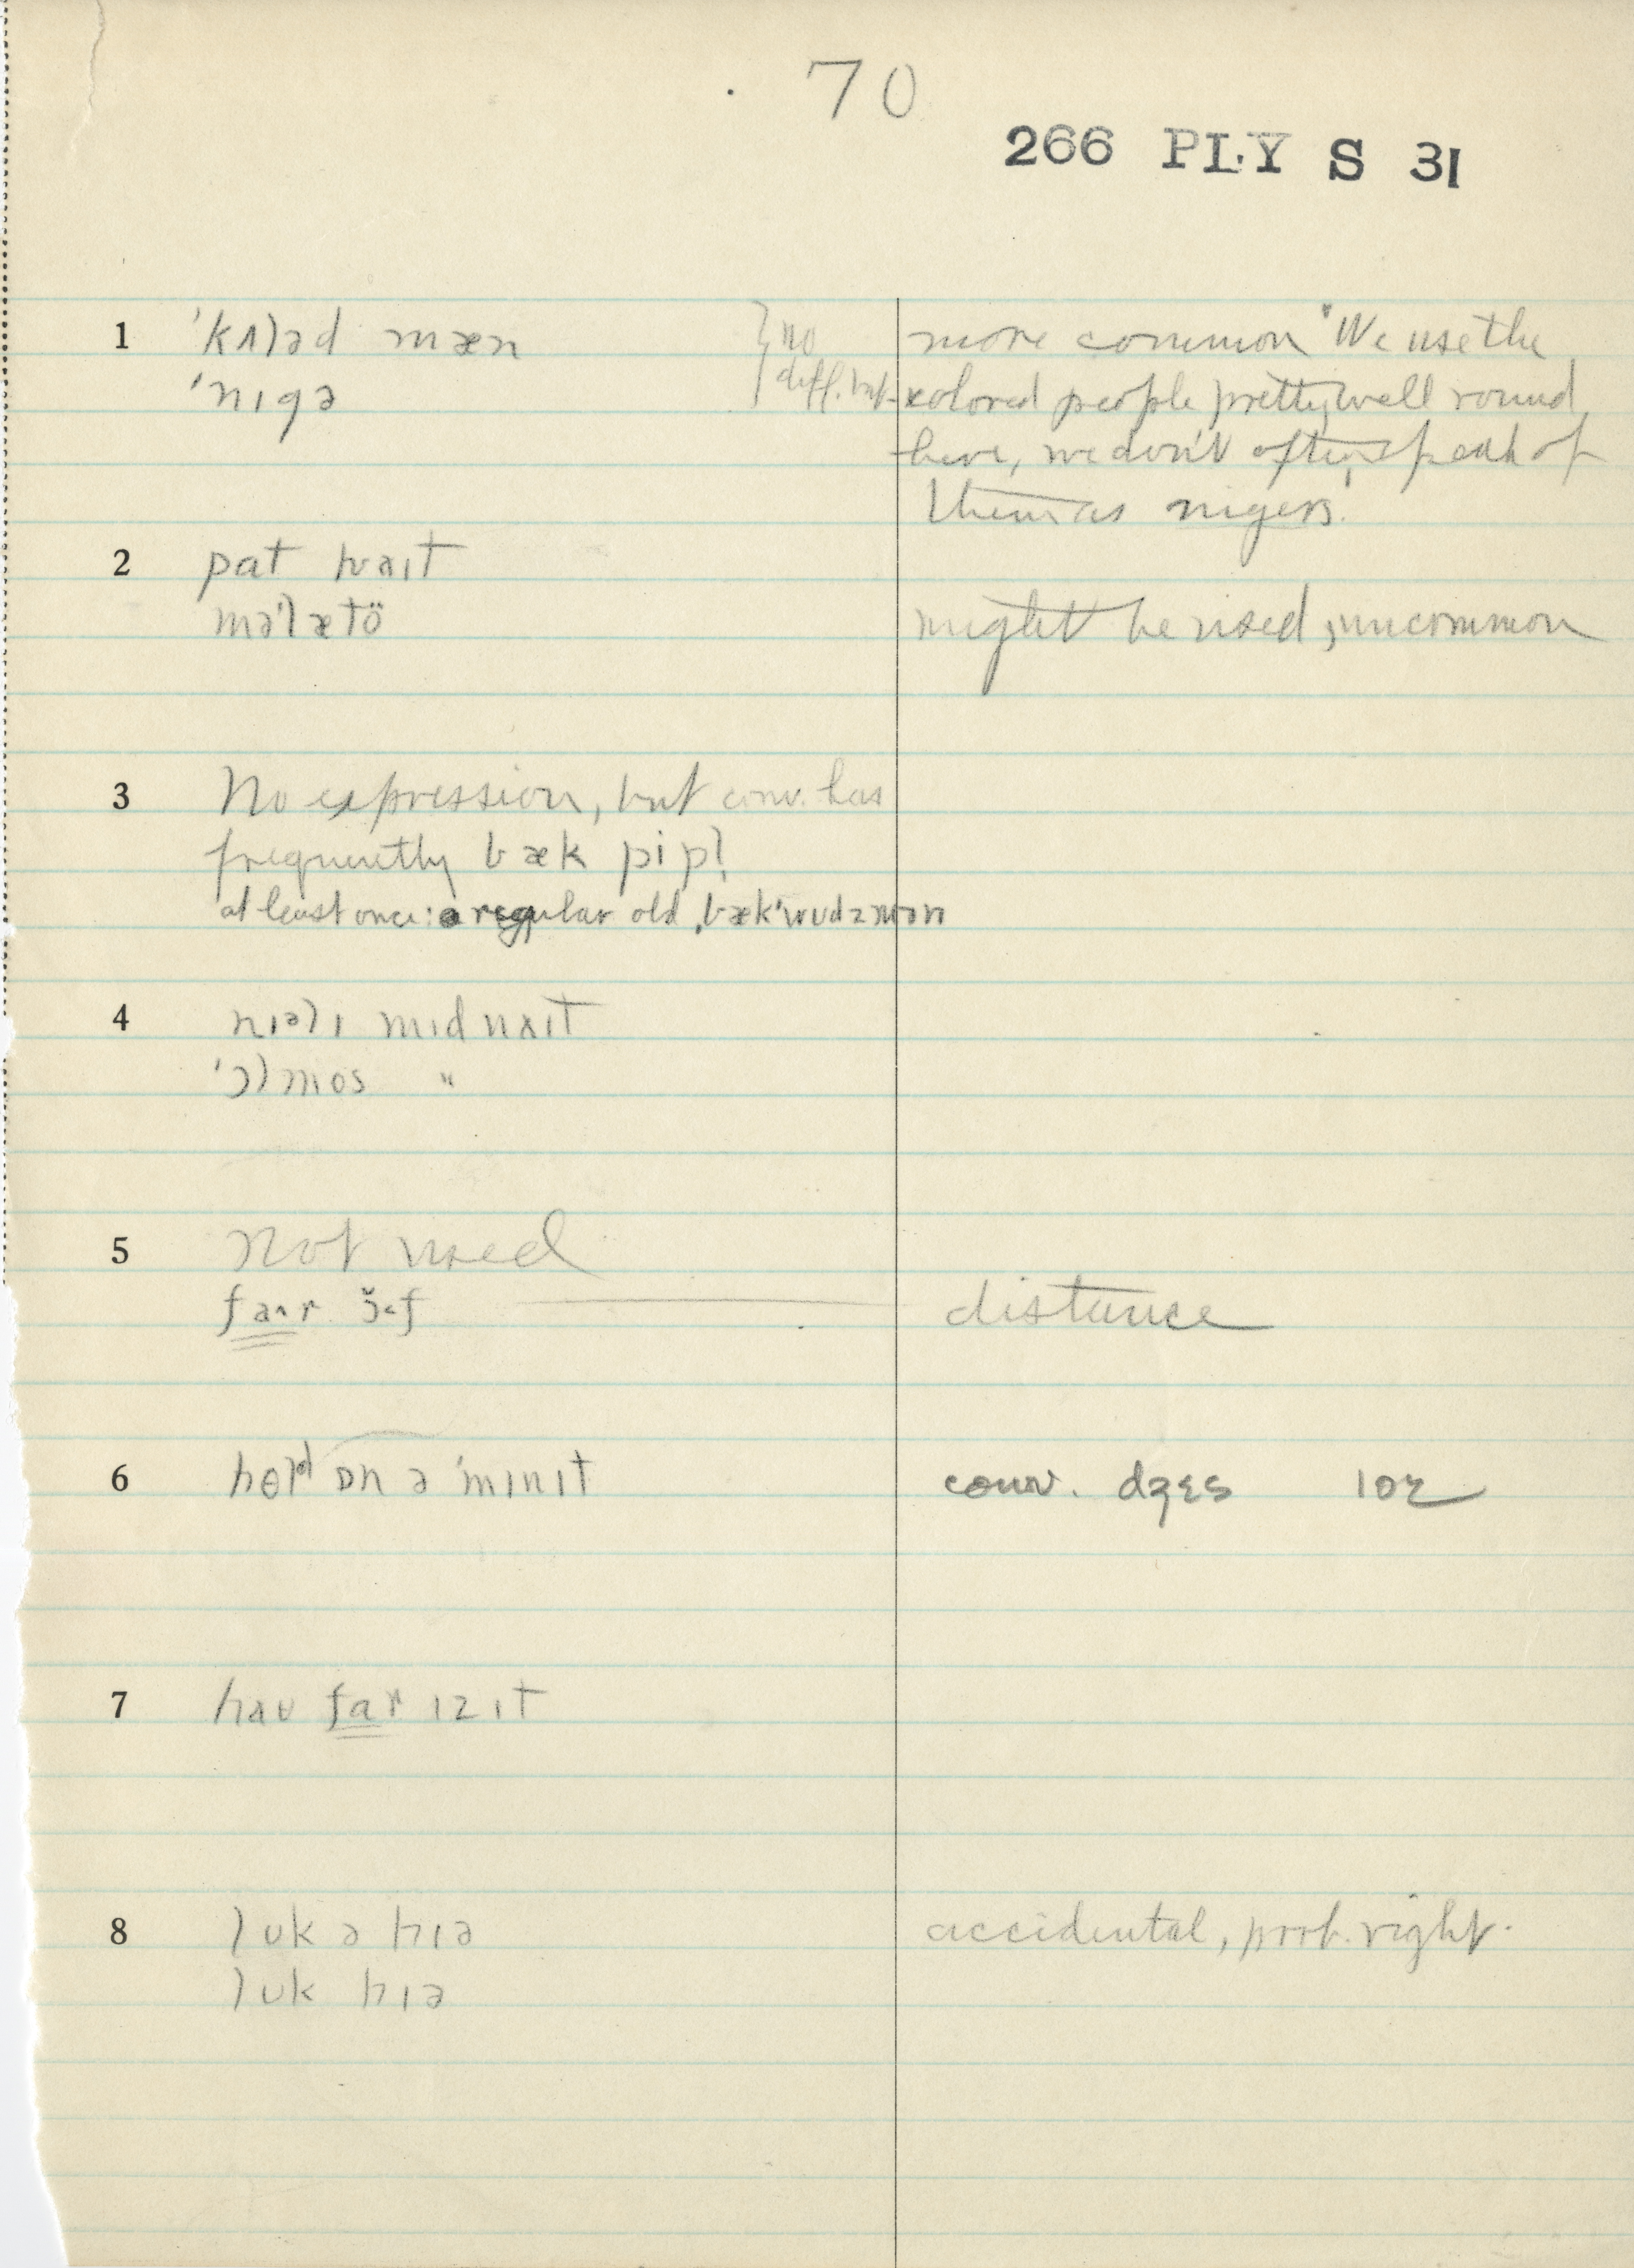 70
266 PLY S 31
1 'kʌləd mæn } no diff. but more common "We use the
'nɪgə colored people pretty well round
here, we don't often speak of
them as nigers."
2 pat hwaɪt
mə'lætö might be used, uncommon
3 No expression, but conv. has
frequently bæk pipl
at least once: a regular old ˌbæk'wudzmən
4 nɪəlɪ mɪdnaɪt
'ɔlmos "
5 Not used
faʌr ɔ̆<f distance
6 hold ɒn ə 'mɪnɪt conv. dʒɛs 102
7 haʊ far ɪz ɪt
8 lʊk ə hɪə accidental, prob. right.
lʊk hɪə